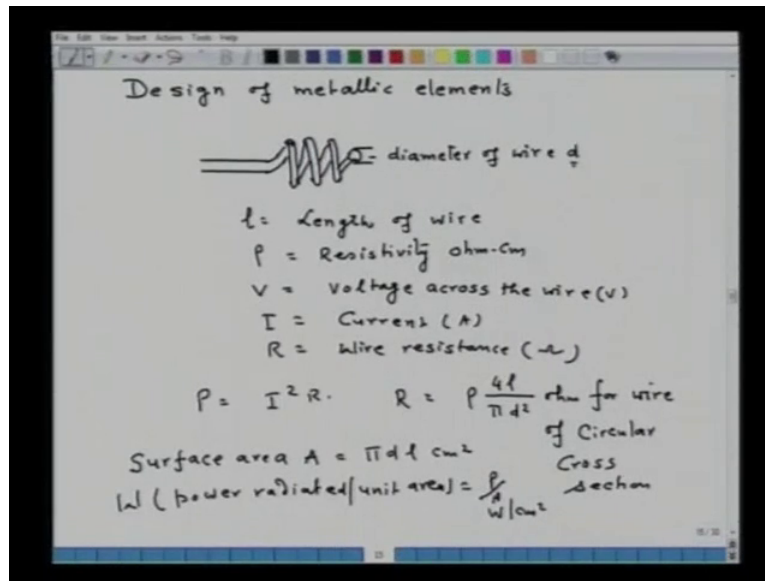 File Edit View Insert Actions Tools Help
Design of metallic elements
- diameter of wire d
l = Length of wire
ρ = Resistivity ohm-cm
V = Voltage across the wire (V)
I = Current (A)
R = Wire resistance (Ω)
P = I² R. R = ρ 4l/πd² ohm for wire
of Circular
Surface area A = πdl cm² Cross
W (power radiated/unit area) = P/A section
W/cm²